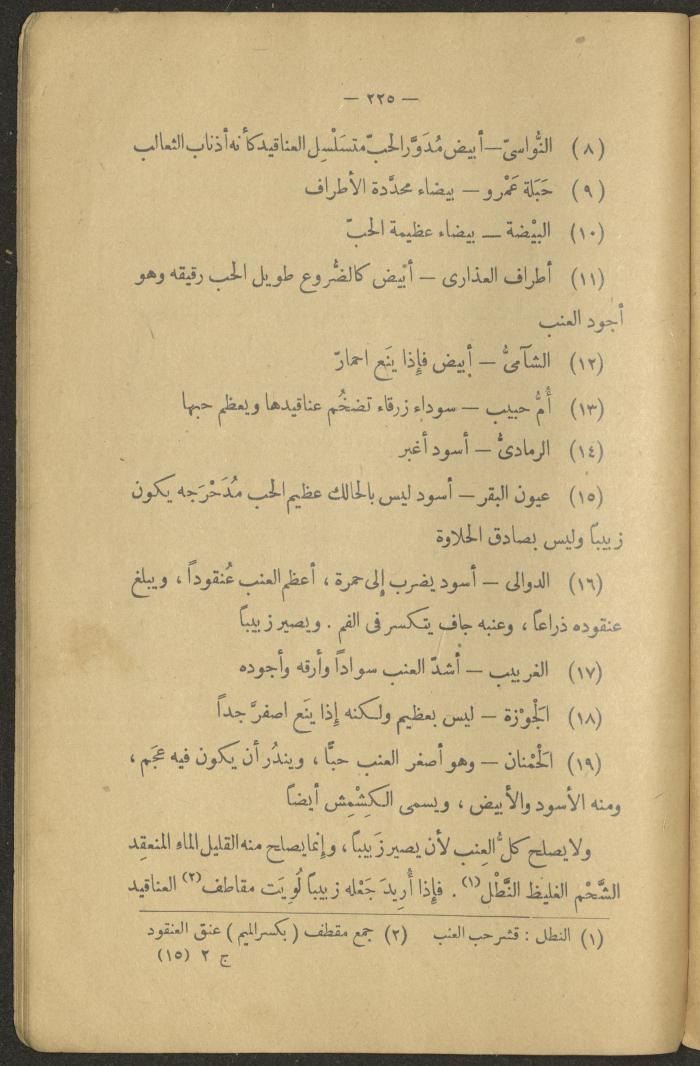 — ٢٢٥ —
(٨) النُّواسىّ — أبيض مُدَوَّر الحبّ متسَلْسِل العناقيد كأنه أذناب الثعالب
(٩) حَبَلة عَمْرو — بيضاء محدَّدة الأطراف
(١٠) البيْضة — بيضاء عظيمة الحبّ
(١١) أطراف العذارى — أبيض كالضُّروع طويل الحب رقيقه وهو
أجود العنب
(١٢) الشآمىُّ — أبيض فإذا ينَع احمارّ
(١٣) أُمُّ حبيب — سوداء زرقاء تضخُم عناقيدها ويعظم حبها
(١٤) الرمادىُّ — أسود أغبر
(١٥) عيون البقر — أسود ليس بالحالك عظيم الحب مُدَحْرَجه يكون
زبيباً وليس بصادق الحلاوة
(١٦) الدوالى — أسود يضرب إلى حمرة ، أعظم العنب عُنقوداً ، ويبلغ
عنقوده ذراعاً ، وعنبه جاف يتكسر فى الفم . ويصير زبيباً
(١٧) الغربيب — أشدّ العنب سواداً وأرقه وأجوده
(١٨) الْجَوْزة — ليس بعظيم ولكنه إذا ينَع اصفرَّ جداً
(١٩) الْحَمْنان — وهو أصغر العنب حبًّا ، ويندُر أن يكون فيه عجَم ،
ومنه الأسود والأبيض ، ويسمى الكِشْمِش أيضاً
ولا يصلح كلُّ العِنب لأن يصير زَبيباً ، وإنما يصلح منه القليل الماء المنعقِد
الشَّحْم الغليظ النَّطْل (١) . فإذا أُرِيدَ جَعْله زبيباً لُوِيَت مقاطف (٢) العناقيد
(١) النطل : قشر حب العنب (٢) جمع مقطف ( بكسر الميم ) عنق العنقود
ج ٢ (١٥)